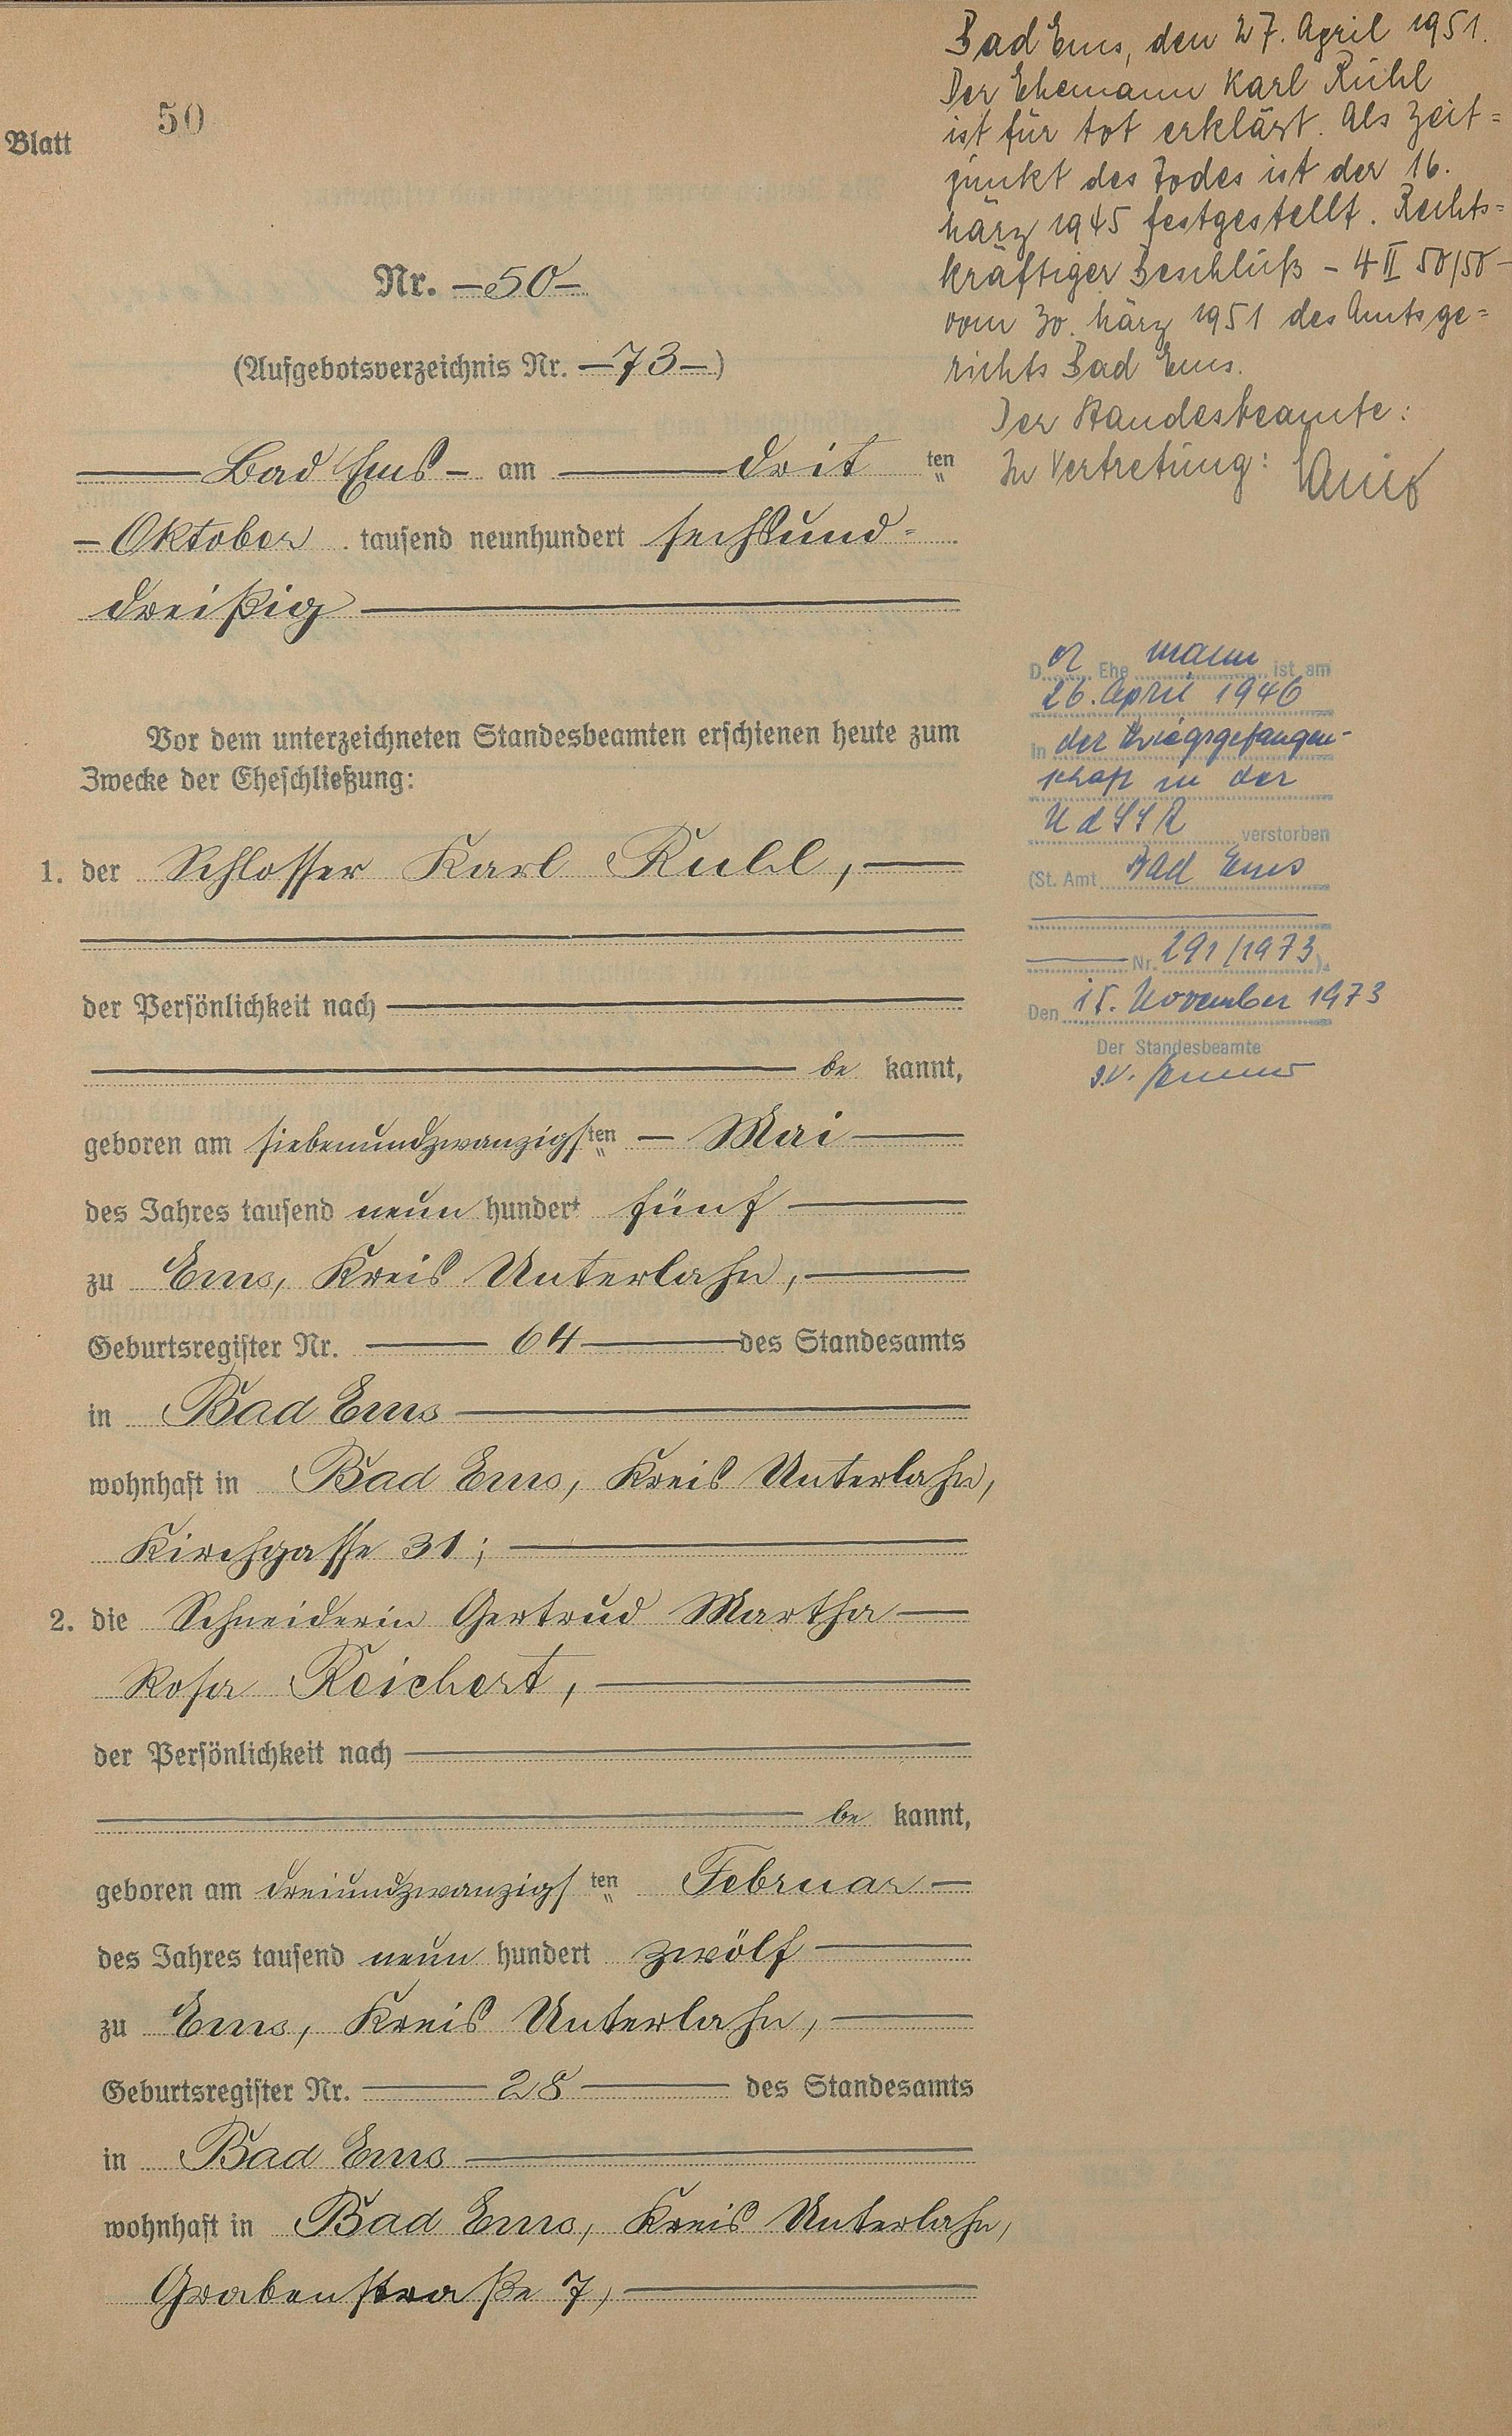 Blatt 50
Nr. –50–
(Aufgebotsverzeichnis Nr. –73–)
Bad Ems – am drit ten
– Oktober tausend neunhundert sechsund-
dreißig
Vor dem unterzeichneten Standesbeamten erschienen heute zum
Zwecke der Eheschließung:
1. der Schlosser Karl Ruhl,
der Persönlichkeit nach
be kannt,
geboren am siebenundzwanzigsten – Mai
des Jahres tausend neun hundert fünf
zu Ems, Kreis Unterlahn,
Geburtsregister Nr. 64 des Standesamts
in Bad Ems
wohnhaft in Bad Ems, Kreis Unterlahn,
Kirchgasse 31;
2. die Schneiderin Gertrud Martha
Rosa Reichert,
der Persönlichkeit nach
be kannt,
geboren am dreiundzwanzigsten Februar –
des Jahres tausend neun hundert zwölf
zu Ems, Kreis Unterlahn,
Geburtsregister Nr. 28 des Standesamts
in Bad Ems
wohnhaft in Bad Ems, Kreis Unterlahn,
Grabenstraße 7,
Bad Ems, den 27. April 1951.
Der Ehemann Karl Ruhl
ist für tot erklärt. Als Zeit=
punkt des Todes ist der 16.
März 1945 festgestellt. Rechts=
kräftiger Beschluß – 4 II 50/50 –
vom 30. März 1951 des Amtsge=
richts Bad Ems.
Der Standesbeamte:
In Vertretung:
Der Ehemann ist am
26. April 1946
in der Kriegsgefangen-
schaft in der
UdSSR verstorben
(St. Amt Bad Ems
Nr. 291/1973).
Den 15. November 1973
Der Standesbeamte
I.V.